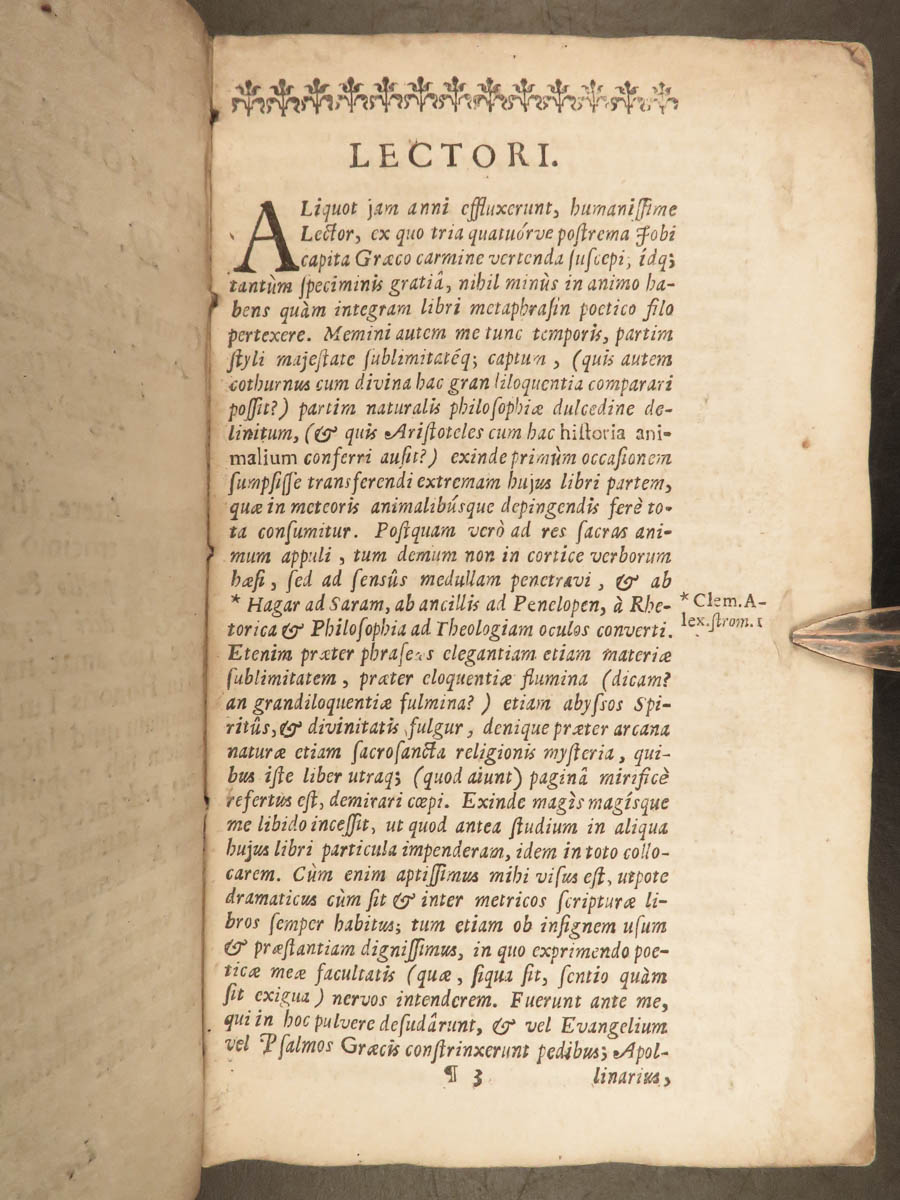 LECTORI.
ALiquot jam anni effluxerunt, humaniſſime
Lector, ex quo tria quatuórve poſtrema Jobi
capita Græco carmine vertenda ſuſcepi, idq;
tantùm ſpeciminis gratiâ, nihil minùs in animo ha-
bens quàm integram libri metaphraſin poetico filo
pertexere. Memini autem me tunc temporis, partim
ſtyli majeſtate ſublimitatéq; captum, (quis autem
cothurnus cum divina hac grandiloquentia comparari
poſſit?) partim naturalis philoſophiæ dulcedine de-
linitum, (& quis Ariſtoteles cum hac hiſtoria ani-
malium conferri auſit?) exinde primùm occaſionem
ſumpſiſſe transferendi extremam hujus libri partem,
quæ in meteoris animalibúsque depingendis ferè to-
ta conſumitur. Poſtquam verò ad res ſacras ani-
mum appuli, tum demum non in cortice verborum
hæſi, ſed ad ſensûs medullam penetravi, & ab
* Hagar ad Saram, ab ancillis ad Penelopen, à Rhe-
* Clem.A-
torica & Philoſophia ad Theologiam oculos converti.
lex.ſtrom.1
Etenim præter phraſeos elegantiam etiam materiæ
ſublimitatem, præter eloquentiæ flumina (dicam?
an grandiloquentiæ fulmina?) etiam abyſſos Spi-
ritûs, & divinitatis fulgur, denique præter arcana
naturæ etiam ſacroſancta religionis myſteria, qui-
bus iſte liber utraq; (quod aiunt) paginâ mirificè
refertus eſt, demirari cœpi. Exinde magìs magíſque
me libido inceſſit, ut quod antea ſtudium in aliqua
hujus libri particula impenderam, idem in toto collo-
carem. Cùm enim aptiſſimus mihi viſus eſt, utpote
dramaticus cùm ſit & inter metricos ſcripturæ li-
bros ſemper habitus; tum etiam ob inſignem uſum
& præſtantiam digniſſimus, in quo exprimendo poe-
ticæ meæ facultatis (quæ, ſiqua ſit, ſentio quàm
ſit exigua) nervos intenderem. Fuerunt ante me,
qui in hoc pulvere deſudârunt, & vel Evangelium
vel Pſalmos Græcis conſtrinxerunt pedibus; Apol-
¶ 3 linarius,